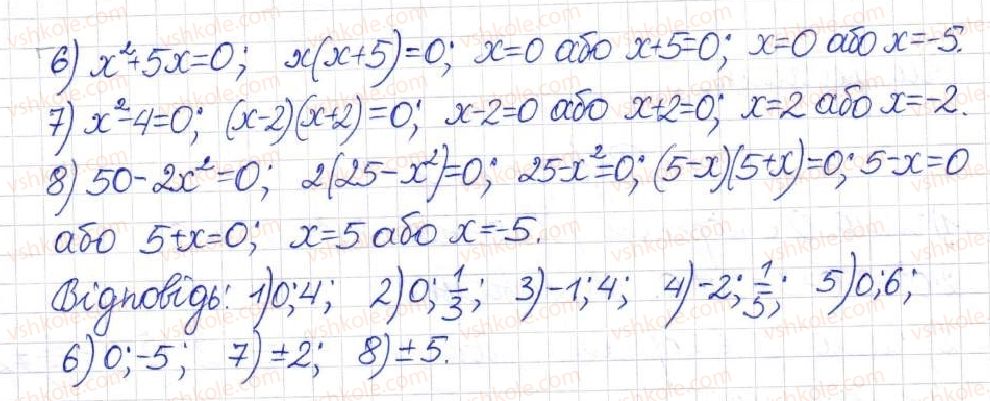 6) x²+5x=0; x(x+5)=0; x=0 або x+5=0; x=0 або x=-5.
7) x²-4=0; (x-2)(x+2)=0; x-2=0 або x+2=0; x=2 або x=-2.
8) 50-2x²=0; 2(25-x²)=0; 25-x²=0; (5-x)(5+x)=0; 5-x=0
або 5+x=0; x=5 або x=-5.
Відповідь: 1) 0; 4; 2) 0; 1/3; 3) -1; 4; 4) -2; 1/5; 5) 0; 6;
6) 0; -5; 7) ±2; 8) ±5.